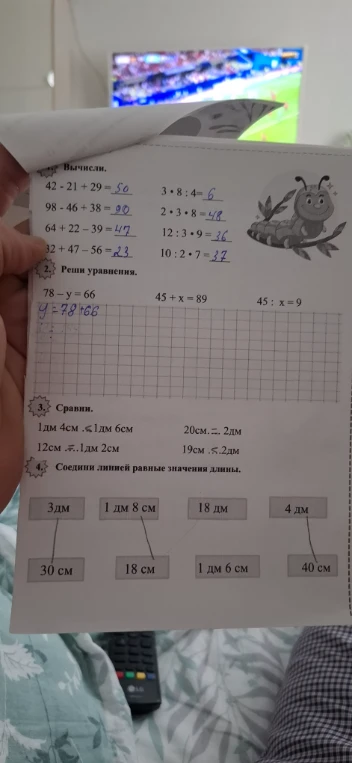 1. Вычисли.
42 - 21 + 29 = 50 3 • 8 : 4= 6
98 - 46 + 38 = 90 2 • 3 • 8 = 48
64 + 22 – 39 = 47 12 : 3 • 9 = 36
32 + 47 – 56 = 23 10 : 2 • 7 =
2. Реши уравнения.
78 – у = 66 45 + х = 89 45 : х = 9
у = 78+66
3. Сравни.
1дм 4см .<.1дм 6см 20см.=. 2дм
12см .=..1дм 2см 19см .<..2дм
4. Соедини линией равные значения длины.
3дм 1 дм 8 см 18 дм 4 дм
30 см 18 см 1 дм 6 см 40 см
LG